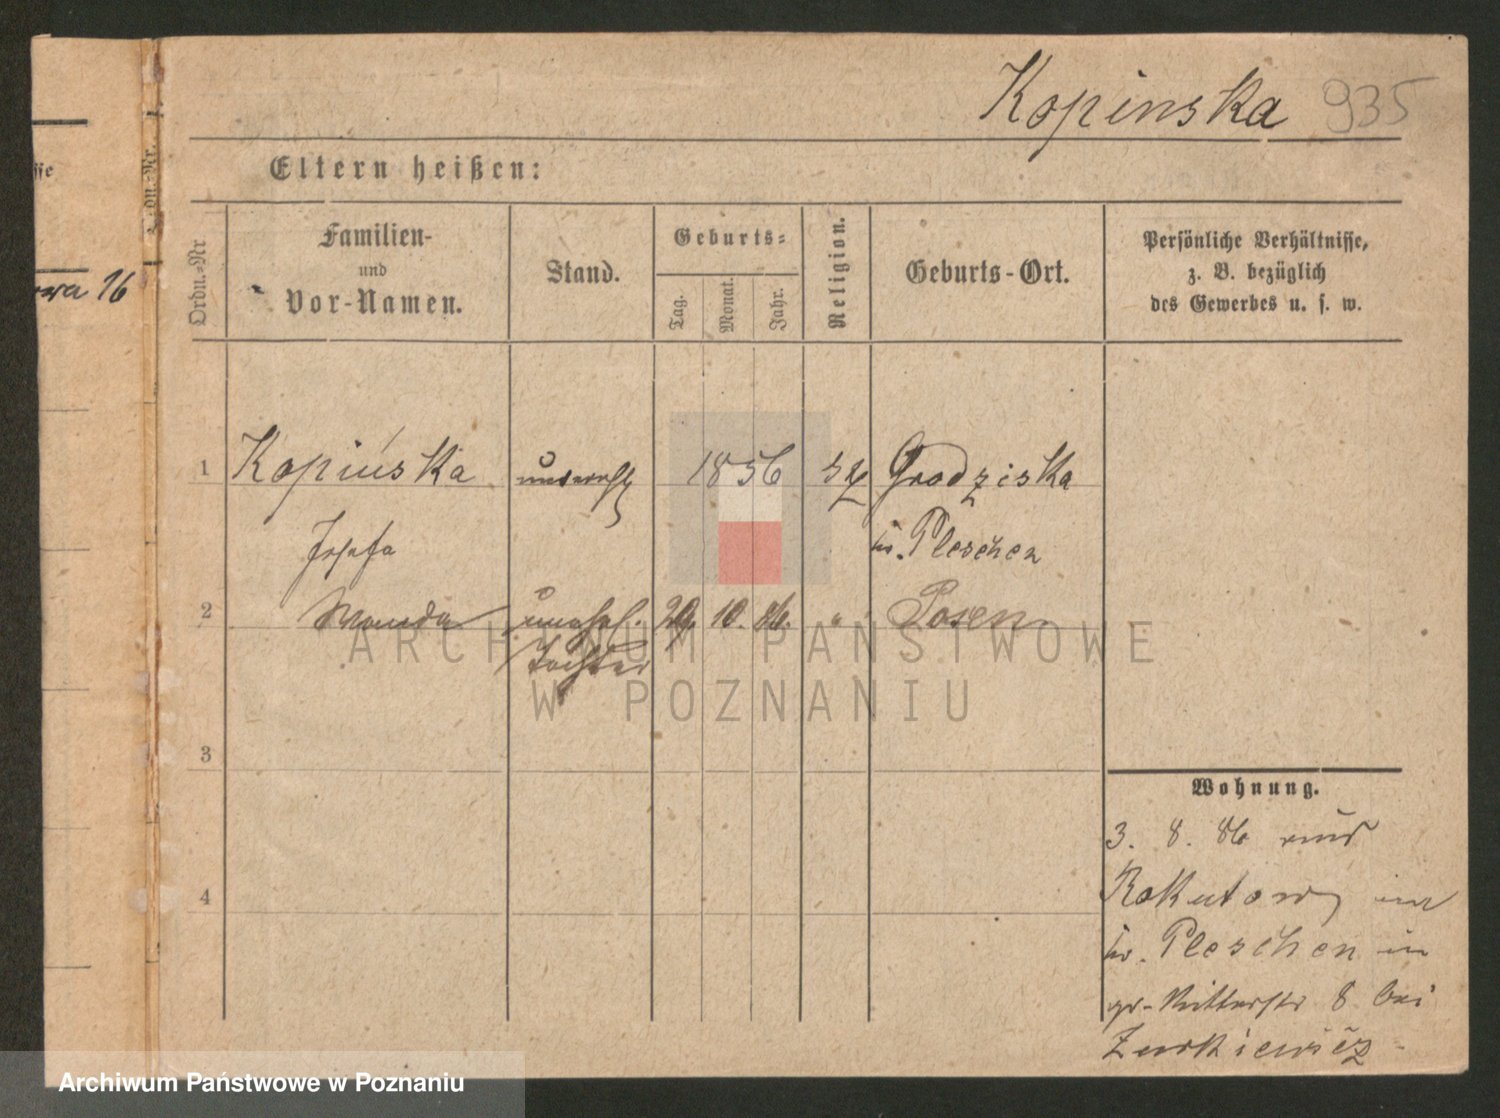 Kopinska 935
Eltern heißen:
Ordn.-Nr
Familien-
und
Vor-Namen.
Stand.
Geburts-
Tag.
Monat.
Jahr.
Religion.
Geburts-Ort.
Persönliche Verhältnisse,
z. B. bezüglich
des Gewerbes u. s. w.
owa 16
1 Kopińska unvereh 1856 Grodziska
Josefa Pleschen
2 Wanda unehel. 29. 10. 86. " Posen
Tochter
3
4
Wohnung.
3. 8. 86 aus
Rokutow in
Kr. Pleschen in
gr. Ritterstr 8 bei
Zurkiewicz
ARCHIWUM PAŃSTWOWE
W POZNANIU
Archiwum Państwowe w Poznaniu